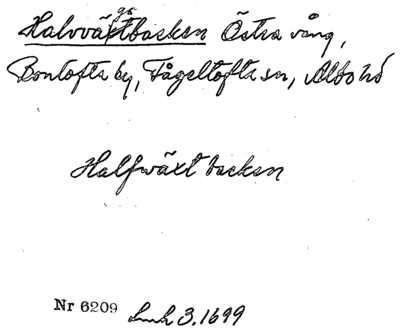 Halvvägstbacken Östra vång,
Bontofta by, Fågeltofta sn, Albo hd
Halfwäxt backen
Nr 6209 Lmk 3.1699